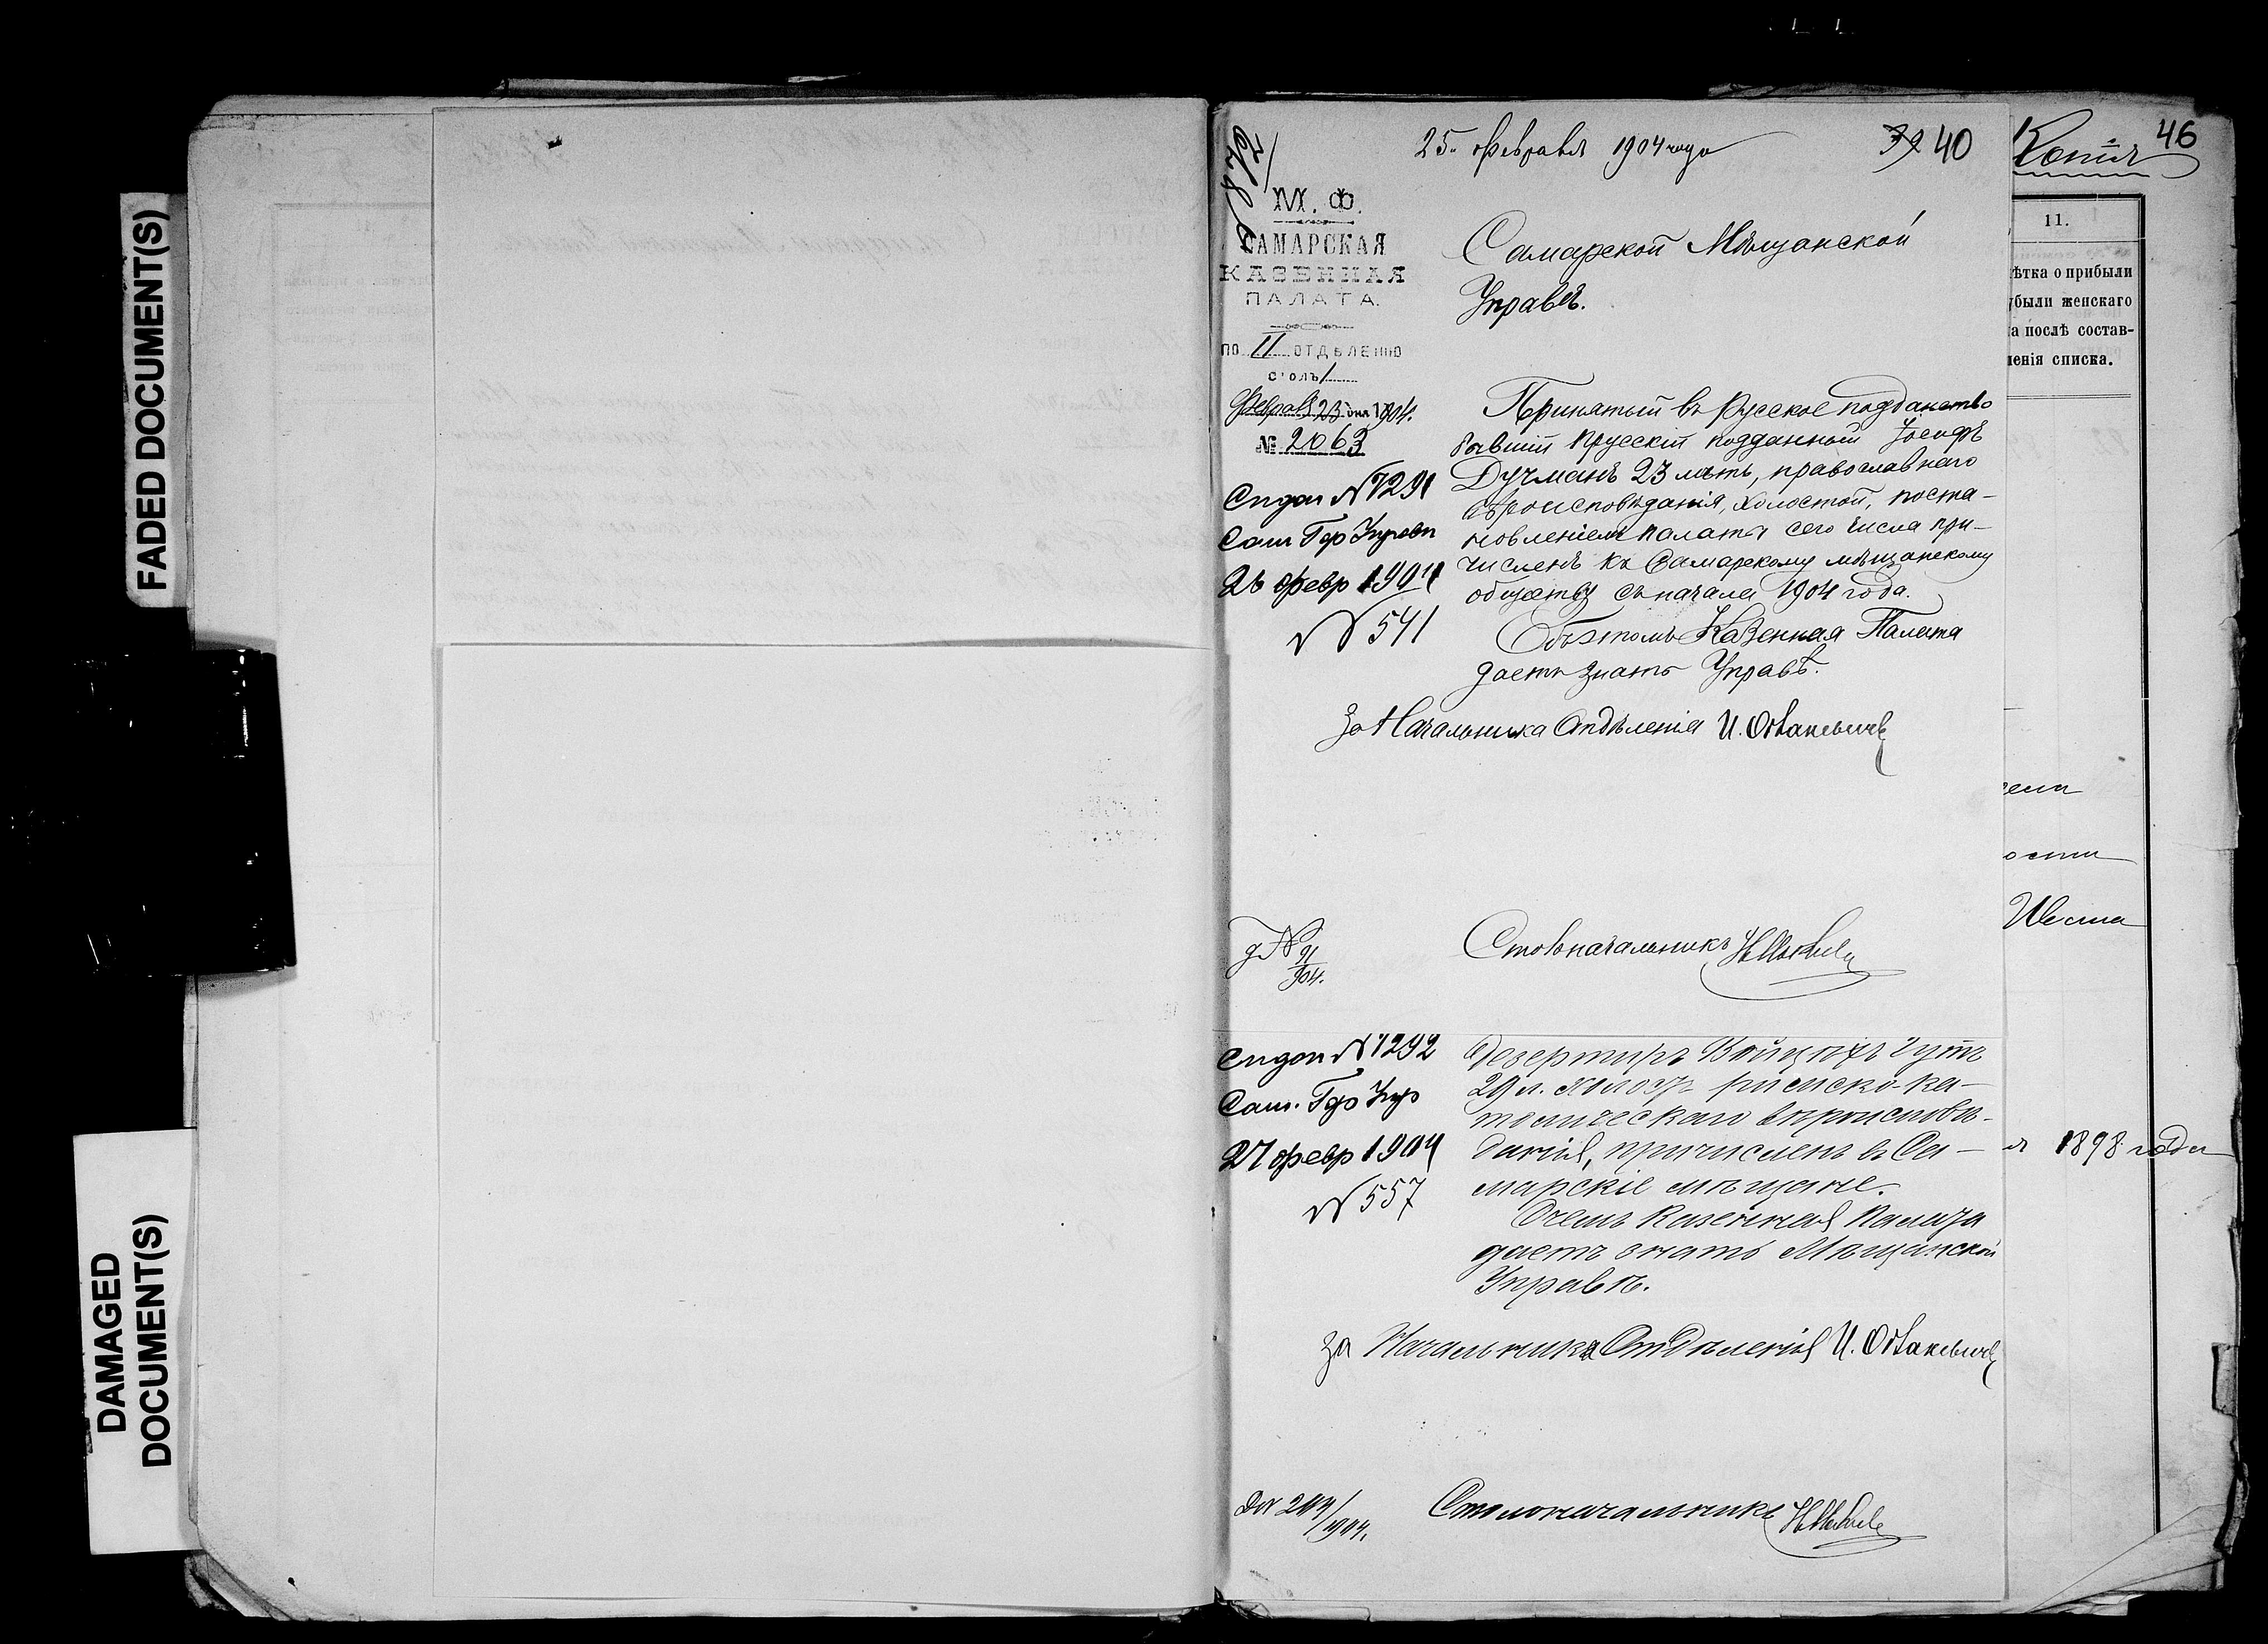 FADED DOCUMENT(S)
DAMAGED
DOCUMENT(S)
25 февраля 1904 года
39 40
М. Ф.
САМАРСКАЯ
КАЗЕННАЯ
ПАЛАТА.
ПО II ОТДѢЛЕНІЮ
СТОЛЪ 1
Феврал 23 дня 1904.
№ 2063
Самарской Мѣщанской
Управѣ.
Принятый въ Русское подданство
бывшій Прусскій подданный Іосифъ
Дучманъ 23 лѣтъ, православнаго
вѣроисповѣданія, холостой, поста-
новленіемъ палаты сего числа при-
численъ къ Самарскому мѣщанскому
обществу съ начала 1904 года.
Объ этомъ Казенная Палата
даетъ знать Управѣ.
За Начальника Отдѣленія И.
№ 1291
Сам Гор Управ
26 февр 1904
№ 541
д № 91
904.
Столоначальникъ
№ 1292
Сам. Гор Упр
27 февр 1904
№ 557
Дезертиръ Войцѣхъ Гутъ
29 л. холост римско-ка-
толическаго вѣроисповѣ-
данія, причисленъ въ Са-
марскіе мѣщане.
О чемъ Казенная Палата
даетъ знать Мѣщанской
Управѣ.
За Начальника Отдѣленія И.
1904.
Столоначальникъ
Копія
46
11.
ѣтка о прибыли
убыли женскаго
а послѣ состав-
ленія списка.
ости
1898 года